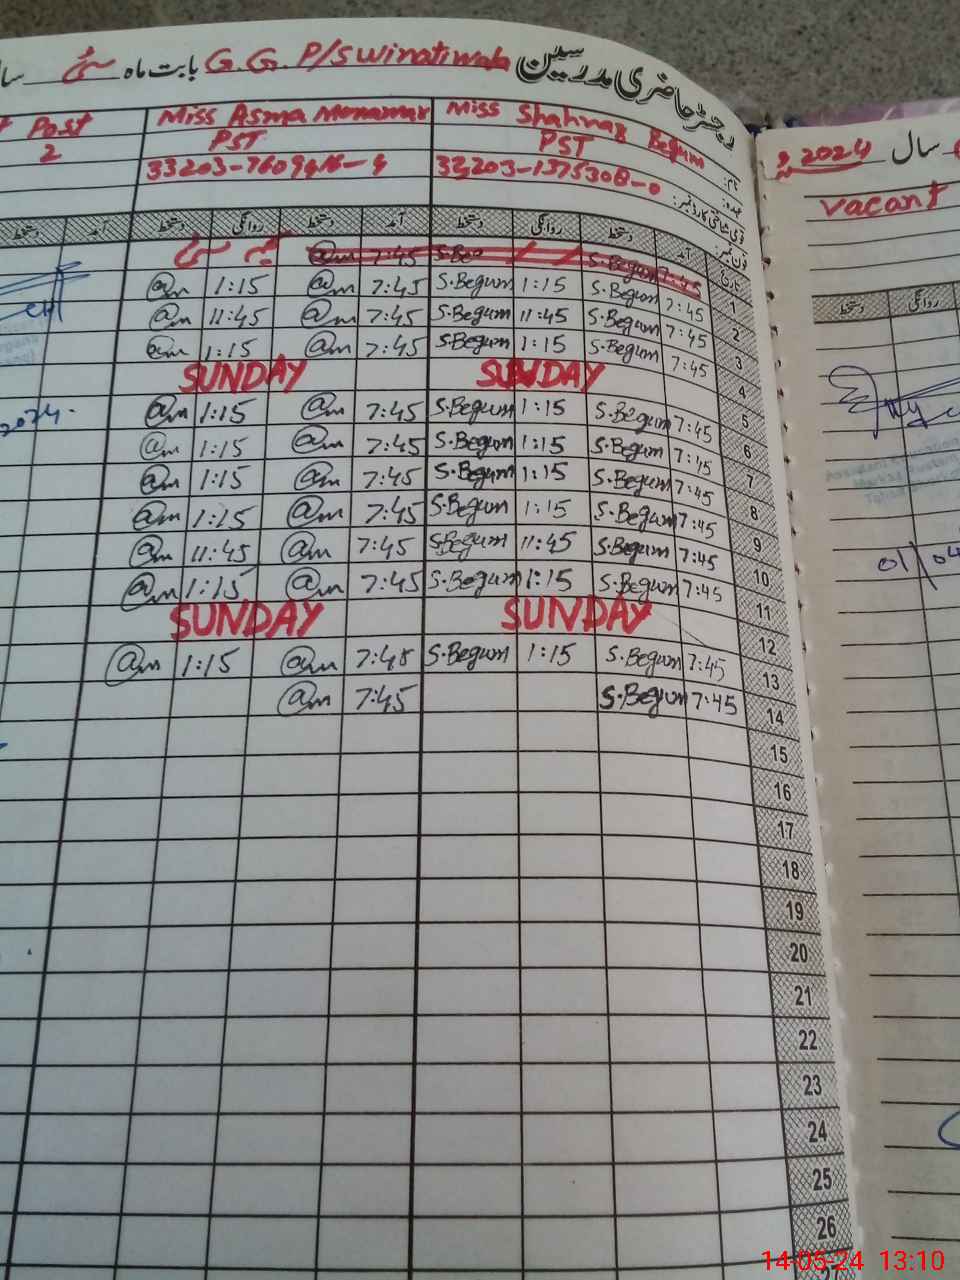 رجسٹر حاضری مدرسین G.G.P/S Winatiwala بابت ماہ مئی سال
Miss Shahnaz Begum Miss Asma Post
نام:
PST PST 2
عہدہ:
قومی شناختی کارڈ نمبر:
فون نمبر:
تاریخ آمد دستخط روانگی دستخط آمد دستخط روانگی دستخط آمد دستخط
1 7:45 S.Begum 7:45 @m یکم مئی
2 7:45 S.Begum 1:15 S.Begum 7:45 @m 1:15 @m
3 7:45 S.Begum 11:45 S.Begum 7:45 @m 11:45 @m
4 7:45 S.Begum 1:15 S.Begum 7:45 @m 1:15 @m
5 SUNDAY SUNDAY
6 7:45 S.Begum 1:15 S.Begum 7:45 @m 1:15 @m
7 7:45 S.Begum 1:15 S.Begum 7:45 @m 1:15 @m
8 7:45 S.Begum 1:15 S.Begum 7:45 @m 1:15 @m
9 7:45 S.Begum 1:15 S.Begum 7:45 @m 1:15 @m
10 7:45 S.Begum 11:45 S.Begum 7:45 @m 11:45 @m
11 7:45 S.Begum 1:15 S.Begum 7:45 @m 1:15 @m
12 SUNDAY SUNDAY
13 7:45 S.Begum 1:15 S.Begum 7:45 @m 1:15 @m
14 7:45 S.Begum 7:45 @m
15
16
17
18
19
20
21
22
23
24
25
26
27
سال 2024
vacant
روانگی دستخط
01/04
14-05-24 13:10